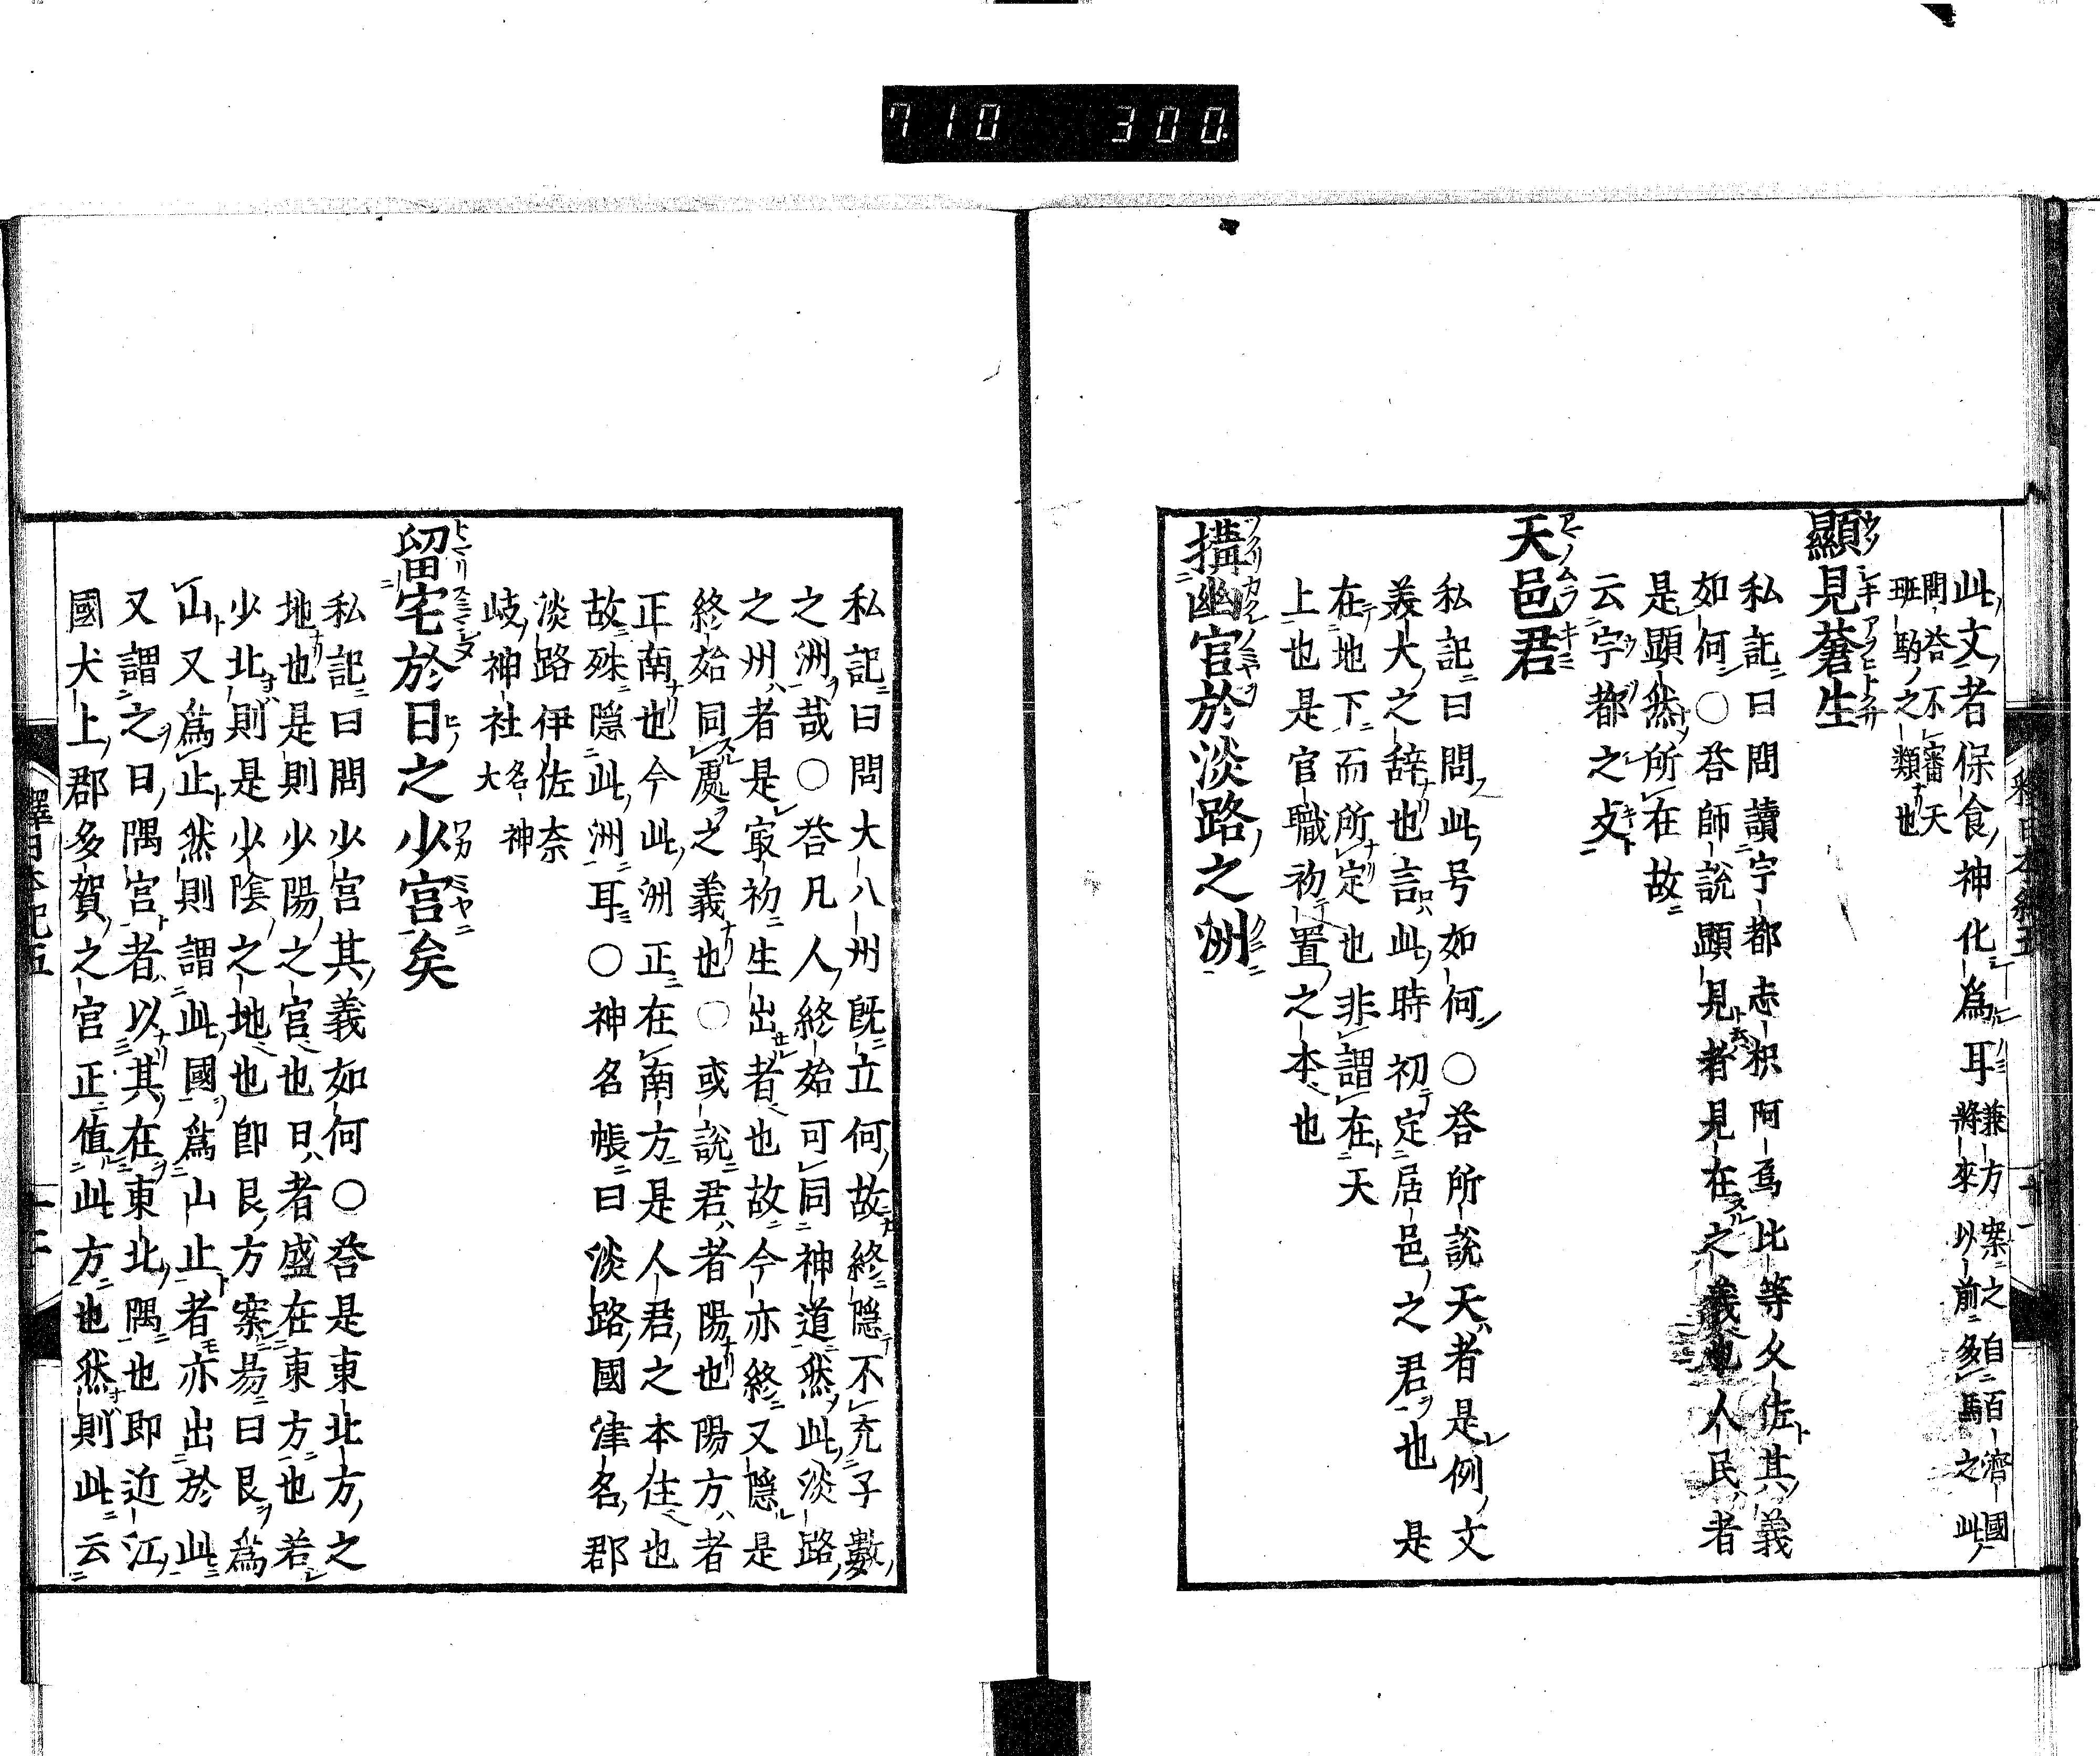 710 300.
此文者保食神化爲耳兼方案之自百濟國
將來以前多馬之此
問答不審天
班駒之類也
顯見蒼生
私記曰問讀宇都志枳阿烏比等久佐其義
如何○荅師說顯見者見在之義也人民者
是顯然所在故
云宇都之攴
天邑君
私記曰問此号如何○荅所說天者是例文
義大之辞也言此時初定居邑之君也是
在地下而所定也非謂在天
上也是官職初置之本也
搆幽宮於淡路之洲
私記曰問大八州旣立何故終隱不充子數
之洲哉○荅凡人終始可同神道然此淡路
之州者是㝡初生出者也故今亦終又隱是
終始同處之義也○或說君者陽也陽方者
正南也今此洲正在南方是人君之本住也
故殊隱此洲耳○神名帳曰淡路國津名郡
淡路伊佐奈
岐神社名神大
留宅於日之少宮矣
私記曰問少宮其義如何○荅是東北方之
地也是則少陽之宮也日者盛在東方也若
少北則是少陰之地也卽艮方案易曰艮爲
山又爲止然則謂此國爲山止者亦出於此
又謂之日隅宮者以其在東北隅也即近江
國犬上郡多賀之宮正值此方也然則此云
釋日本紀五